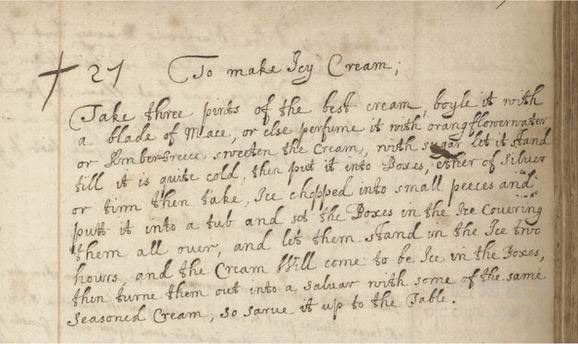 27 To make Icy Cream;
Take three pints of the best cream, boyle it with
a blade of Mace, or else perfume it with orangflowerwater
or AmberGreece sweeten the Cream, with sugar let it stand
till it is quite cold, then put it into Boxes, ether of Siluer
or tinn then take, Ice chopped into small peeces and
putt it into a tub and set the Boxes in the Ice Couering
them all over, and let them stand in the Ice two
hours, and the Cream Will come to be Ice in the Boxes,
then turne them out into a saluar with some of the same
Seasoned Cream, so sarue it up to the Table.